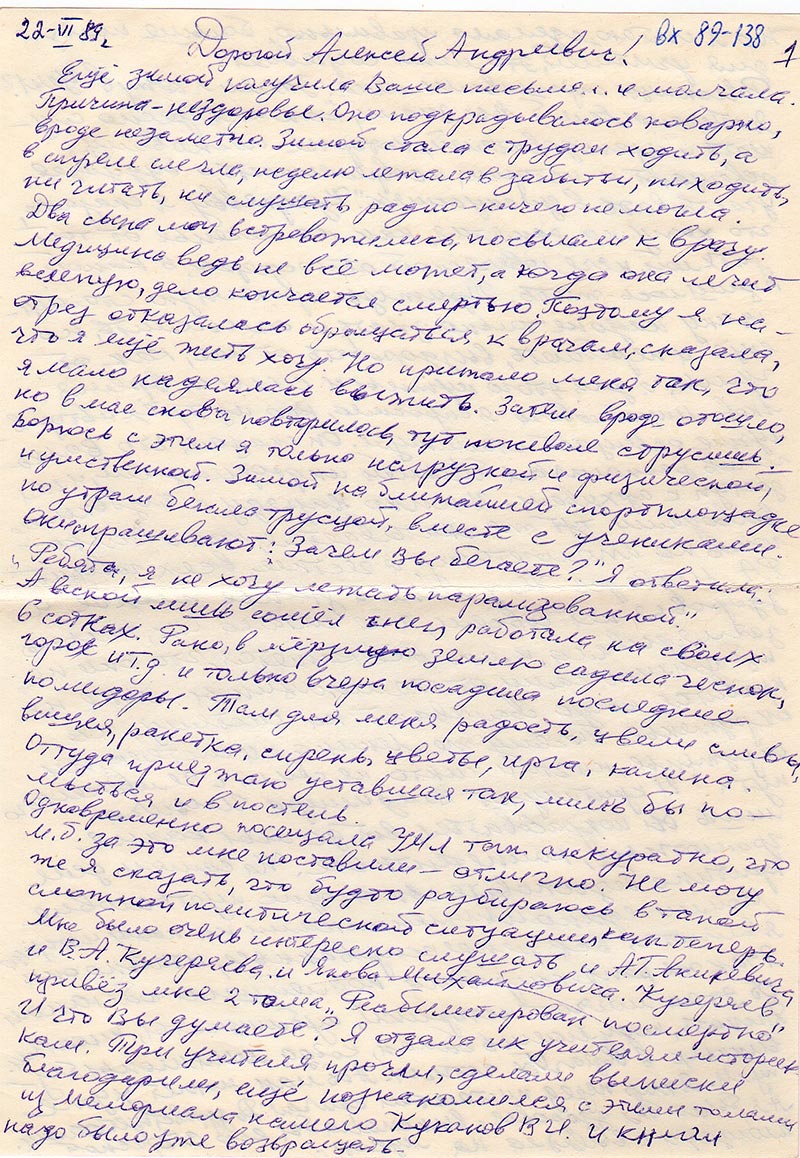 22-VI 89г. вх 89-138 1
Дорогой Алексей Андреевич!
Ещё зимой получила Ваше письмо... и молчала.
Причина - нездоровье. Оно подкрадывалось коварно,
вроде незаметно. Зимой стала с трудом ходить, а
в апреле слегла, неделю лежала в забытьи, ни ходить,
ни читать, ни слушать радио - ничего не могла.
Два сына мои встревожились, посылали к врачу.
Медицина ведь не всё может, а когда она лечит
вслепую, дело кончается смертью. Поэтому я на-
отрез отказалась обращаться к врачам, сказала,
что я ещё жить хочу. Но прижало меня так, что
я мало надеялась выжить. Затем вроде отошло,
но в мае снова повторилось, тут поневоле струсишь.
Борюсь с этим я только нагрузкой и физической,
и умственной. Зимой на ближайшей спортплощадке
по утрам бегала трусцой, вместе с учениками.
Они спрашивают: "Зачем Вы бегаете?" Я ответила:
"Ребята, я не хочу лежать парализованной."
А весной лишь сошёл снег, работала на своих
6 сотках. Рано, в мёрзлую землю садила чеснок,
горох и т.д. и только вчера посадила последние
помидоры. Там для меня радость, цвели сливы,
вишня, ракетка, сирень, цветы, ирга, калина.
Оттуда приезжаю уставшая так, лишь бы по-
мыться и в постель.
Одновременно посещала УМЛ так аккуратно, что
м.б. за это мне поставили - отлично. Не могу
же я сказать, что будто разбираюсь в такой
сложной политической ситуации, как теперь.
Мне было очень интересно слушать и А.Г. Аникевича
и В.А. Кучеряева, и Якова Михайловича. Кучеряев
привёз мне 2 тома "Реабилитирован посмертно"
И что Вы думаете? Я отдала их учителям истори-
кам. Три учителя прочли, сделали выписки
благодарили, ещё познакомился с этими томами
из мемориала нашего Куканов В.И. и книги
надо было уже возвращать.